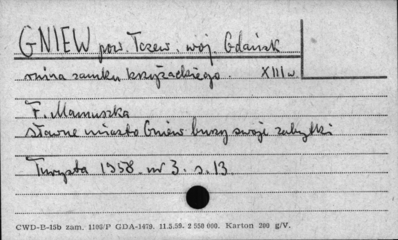 GNIEW pow. Tczew. woj. Gdańsk
ruina zamku krzyżackiego. XIII w.
F. Mamuszka
Sławne miasto Gniew burzy swoje zabytki
Turysta 1958. nr 3. s. 13.
CWD-B-15b zam. 1103/P GDA-1479. 11.5.59. 2 550 000. Karton 200 g/V.